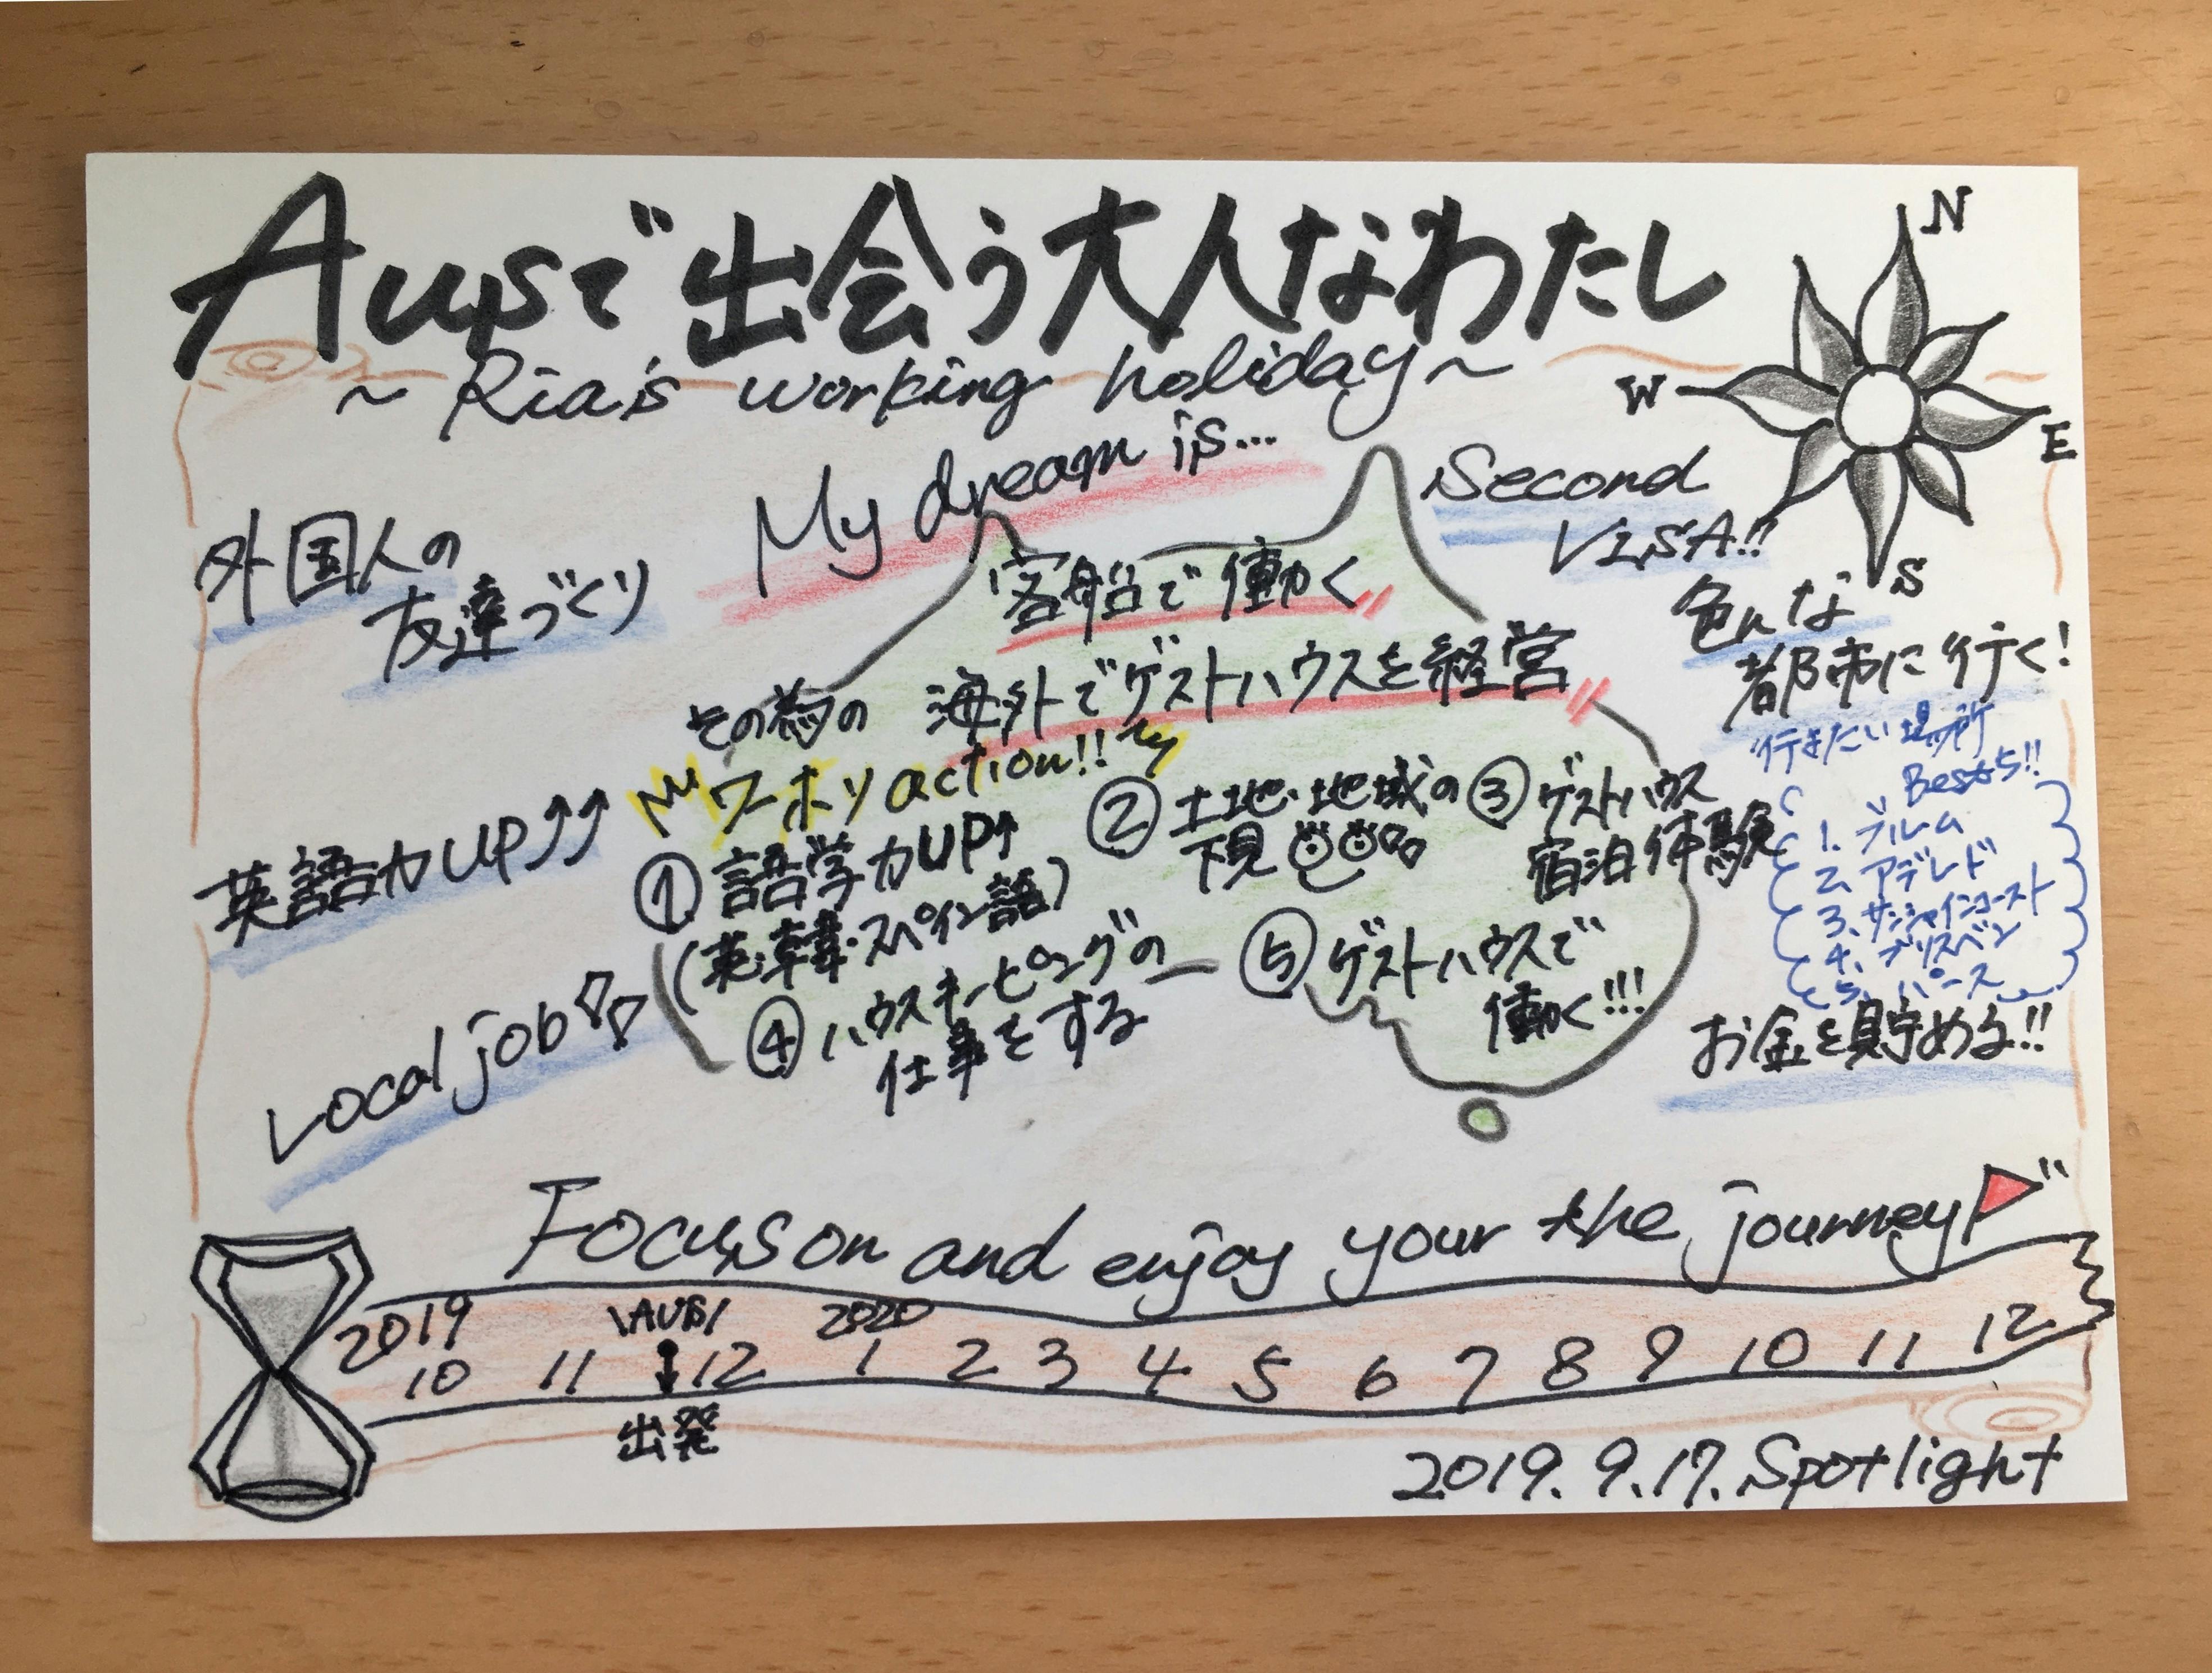 Ausで出会う大人なわたし
~Ria's working holiday~
N
W
E
S
My dream is...
客船で働く
海外でゲストハウスを経営
外国人の
友達づくり
英語力UP↑↑
Local job
Second
VISA!!
色んな
都市に行く!
行きたい場所
Best5!!
1. ブルーム
2. アデレード
3. サンシャインコースト
4. ブリスベン
5. パース
お金を貯める!!
その為の
ワーホリaction!!
①語学力UP↑
(英・韓・スペイン語)
②土地・地域の
下見
③ゲストハウス
宿泊体験
④ハウスキーピングの
仕事をする
⑤ゲストハウスで
働く!!!
Focus on and enjoy your the journey
2019
\AUS/
2020
10 11 ↓ 12 1 2 3 4 5 6 7 8 9 10 11 12
出発
2019.9.17.Spotlight